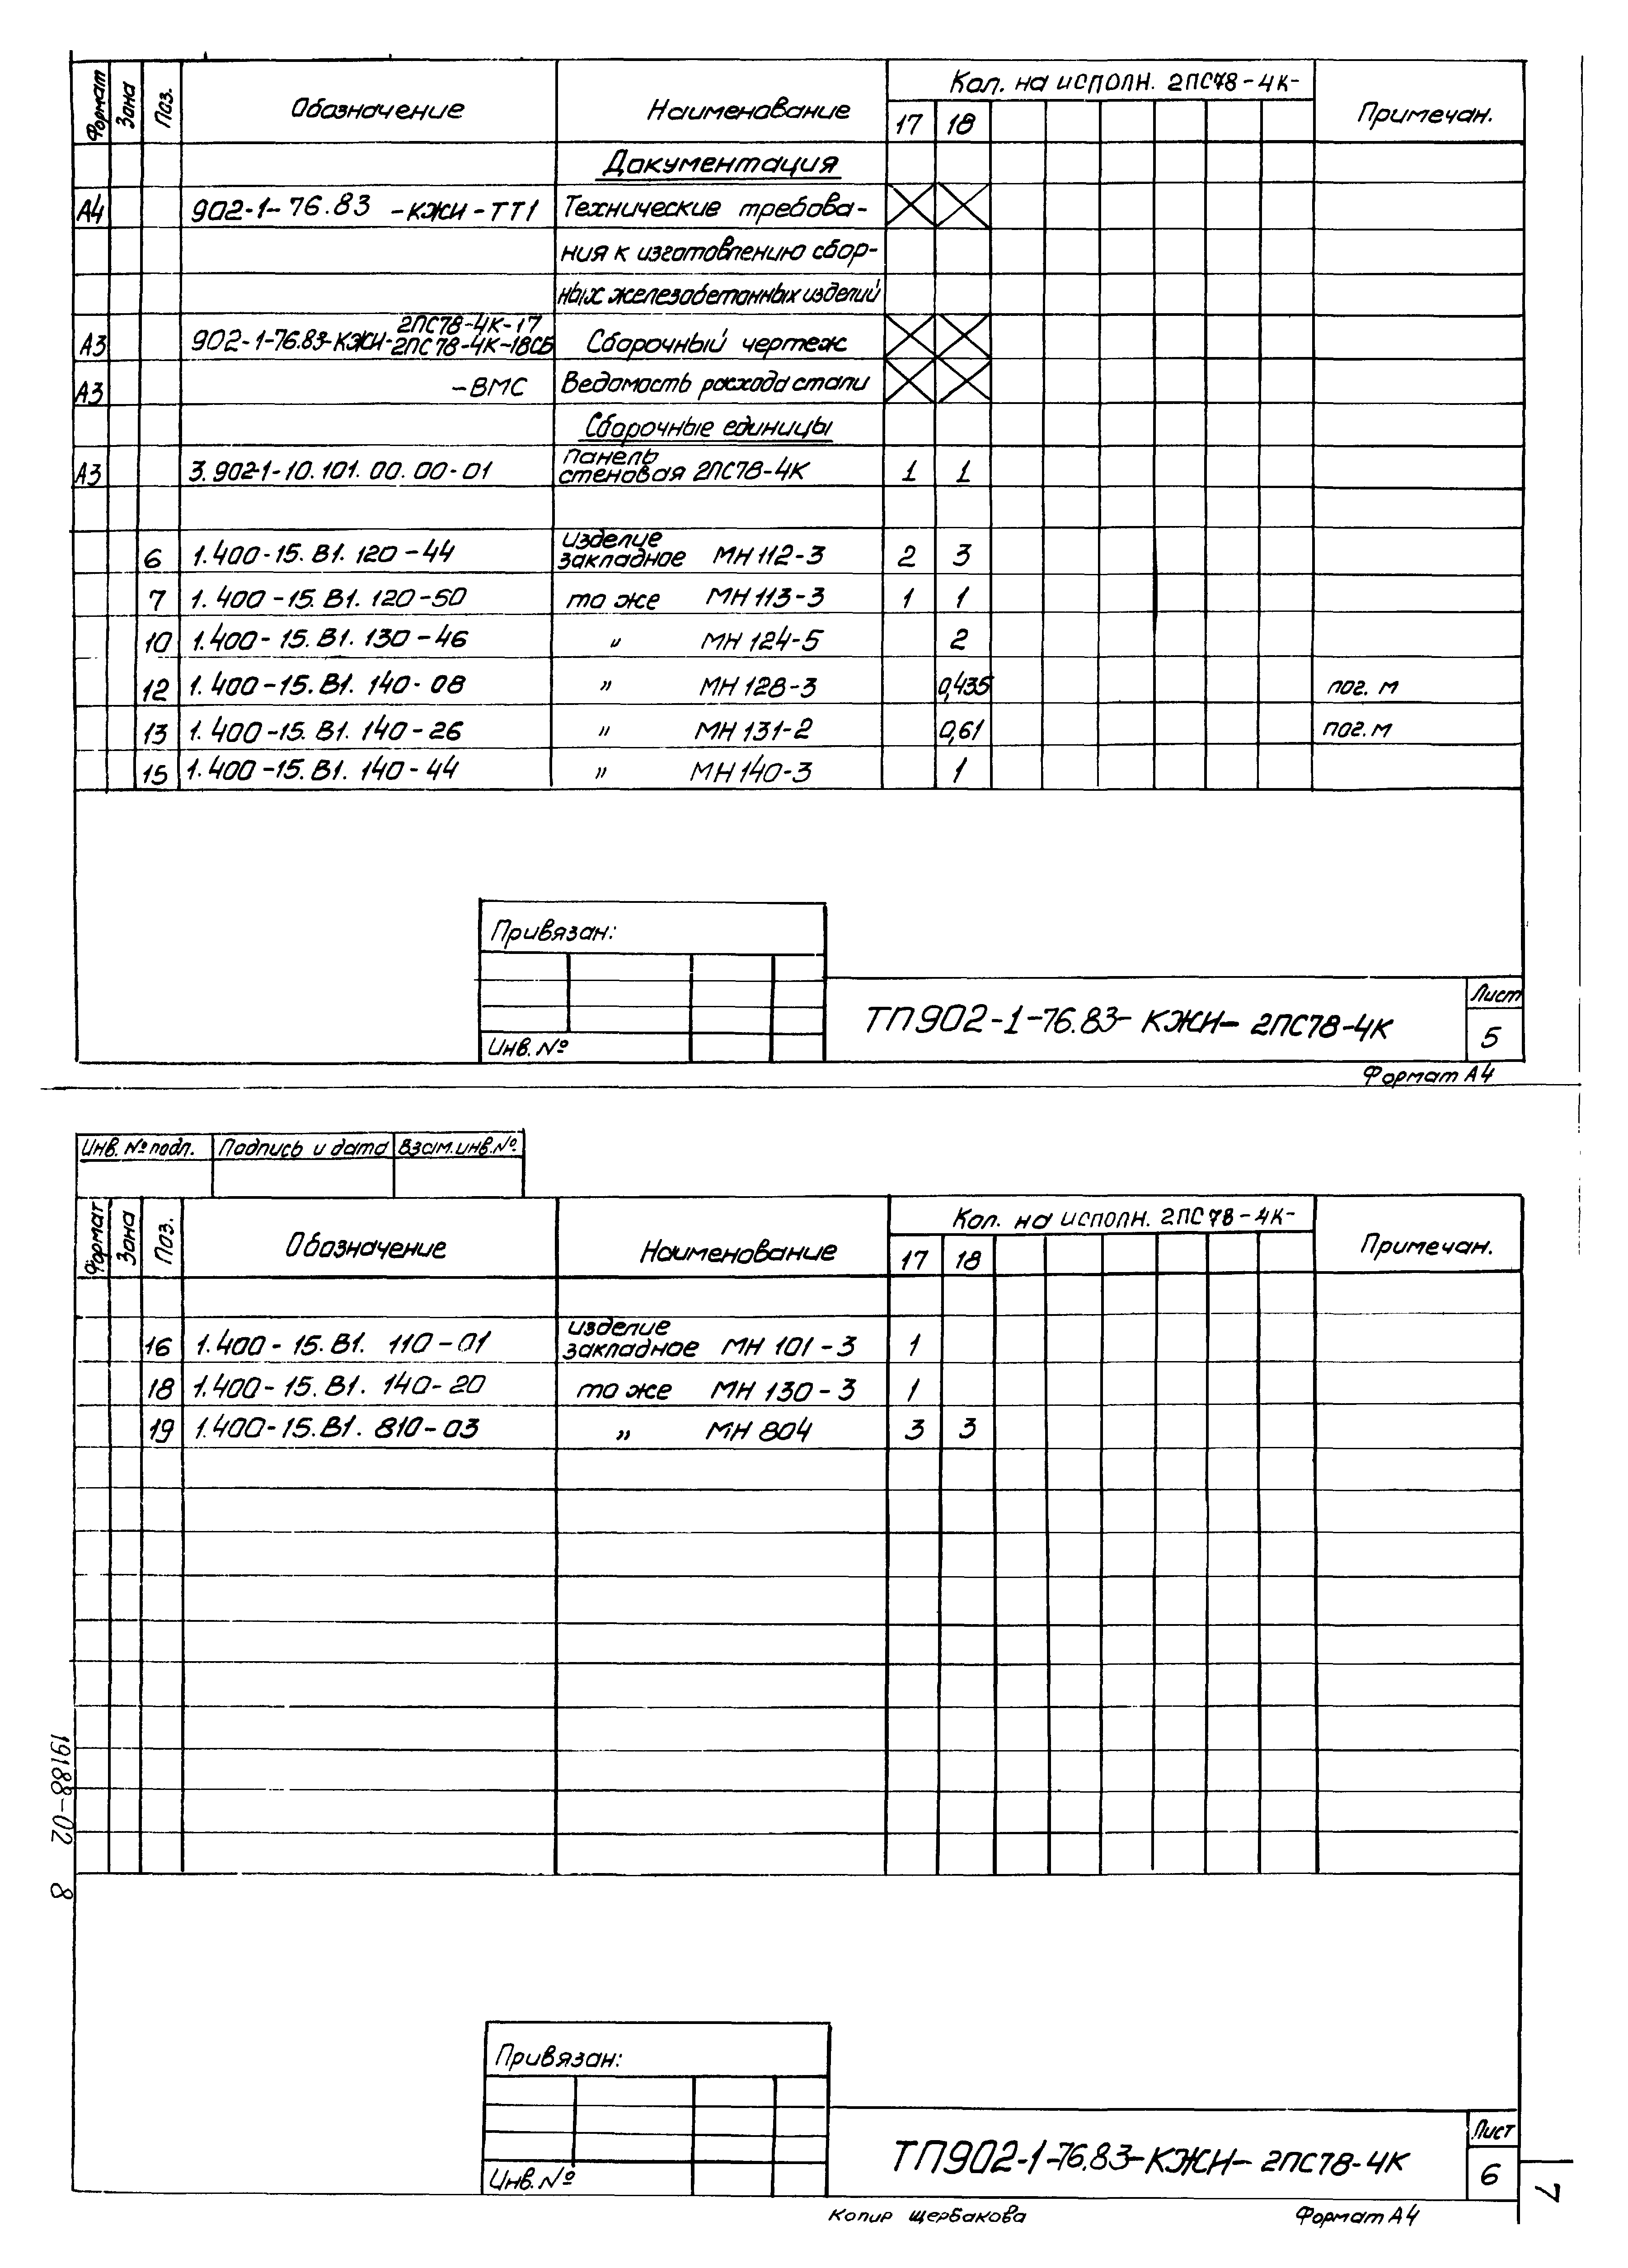 Формат Зона Поз. Обозначение Наименование Кол. на исполн. 2ПС78-4К- Примечан.
17 18
Документация
А4 902-1-76.83 -КЖИ-ТТ1 Технические требова-
ния к изготовлению сбор-
ных железобетонных изделий
А3 902-1-76.83-КЖИ- 2ПС78-4К-17 2ПС78-4К-18СБ Сборочный чертеж
А3 -ВМС Ведомость расхода стали
Сборочные единицы
А3 3.902-1-10.101.00.00-01 Панель стеновая 2ПС78-4К 1 1
6 1.400-15.В1.120-44 изделие закладное МН 112-3 2 3
7 1.400-15.В1.120-50 то же МН 113-3 1 1
10 1.400-15.В1.130-46 " МН 124-5 2
12 1.400-15.В1.140-08 " МН 128-3 0,435 пог. м
13 1.400-15.В1.140-26 " МН 131-2 0,61 пог. м
15 1.400-15.В1.140-44 " МН 140-3 1
Привязан:
Инв. №
ТП902-1-76.83-КЖИ-2ПС78-4К
Лист
5
Формат А4
Инв. № подл. Подпись и дата Взам.инв.№
Формат Зона Поз. Обозначение Наименование Кол. на исполн. 2ПС78-4К- Примечан.
17 18
16 1.400-15.В1. 110-01 изделие закладное МН 101-3 1
18 1.400-15.В1. 140-20 то же МН 130-3 1
19 1.400-15.В1. 810-03 " МН 804 3 3
19188-02 8
Привязан:
Инв. №
ТП902-1-76.83-КЖИ-2ПС78-4К
Лист
6
7
Копир Щербакова Формат А4